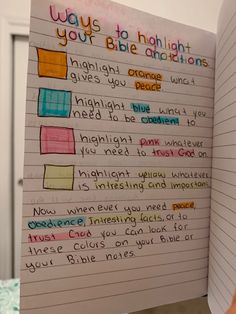 Ways to highlight
your Bible anotations
highlight orange what
gives you peace
highlight blue what you
need to be obedient to
highlight pink whatever
you need to trust God on
highlight yellow whatever
is intresting and important
Now when ever you need peace,
Obedience, Intresting facts, or to
trust God you can look for
these colors on your Bible or
your Bible notes.